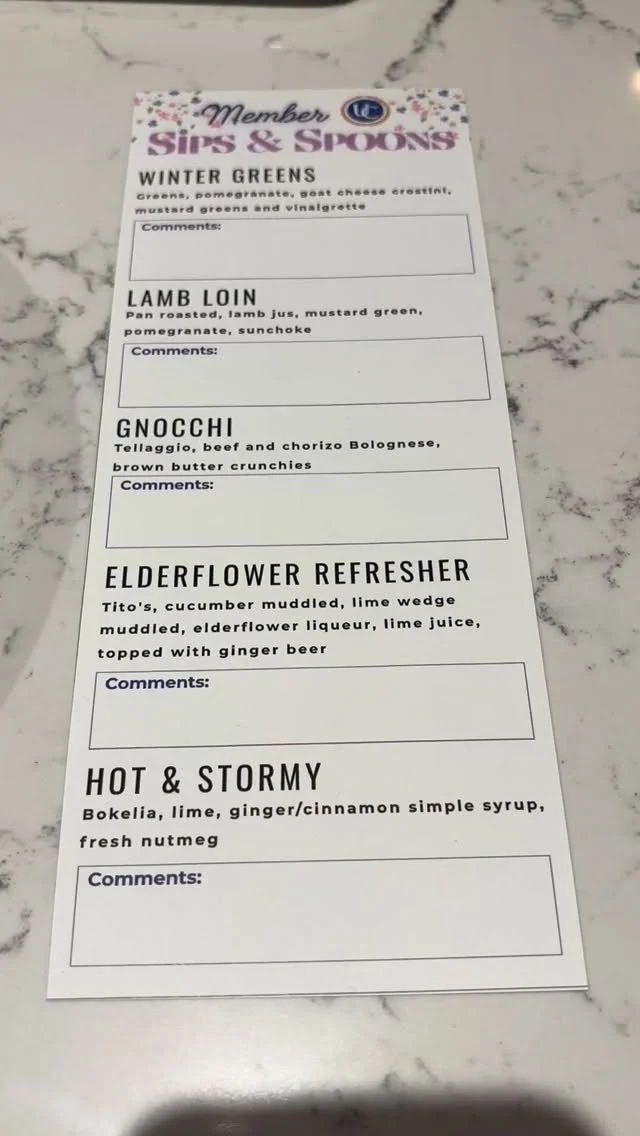 Member UC
SiPS & SPOONS
WINTER GREENS
Greens, pomegranate, goat cheese crostini,
mustard greens and vinaigrette
Comments:
LAMB LOIN
Pan roasted, lamb jus, mustard green,
pomegranate, sunchoke
Comments:
GNOCCHI
Tellaggio, beef and chorizo Bolognese,
brown butter crunchies
Comments:
ELDERFLOWER REFRESHER
Tito's, cucumber muddled, lime wedge
muddled, elderflower liqueur, lime juice,
topped with ginger beer
Comments:
HOT & STORMY
Bokelia, lime, ginger/cinnamon simple syrup,
fresh nutmeg
Comments: